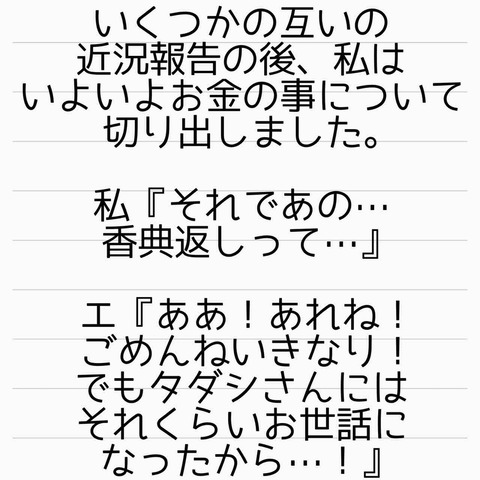 いくつかの互いの
近況報告の後、私は
いよいよお金の事について
切り出しました。
私『それであの…
香典返しって…』
エ『ああ！あれね！
ごめんねいきなり！
でもタダシさんには
それくらいお世話に
なったから…！』